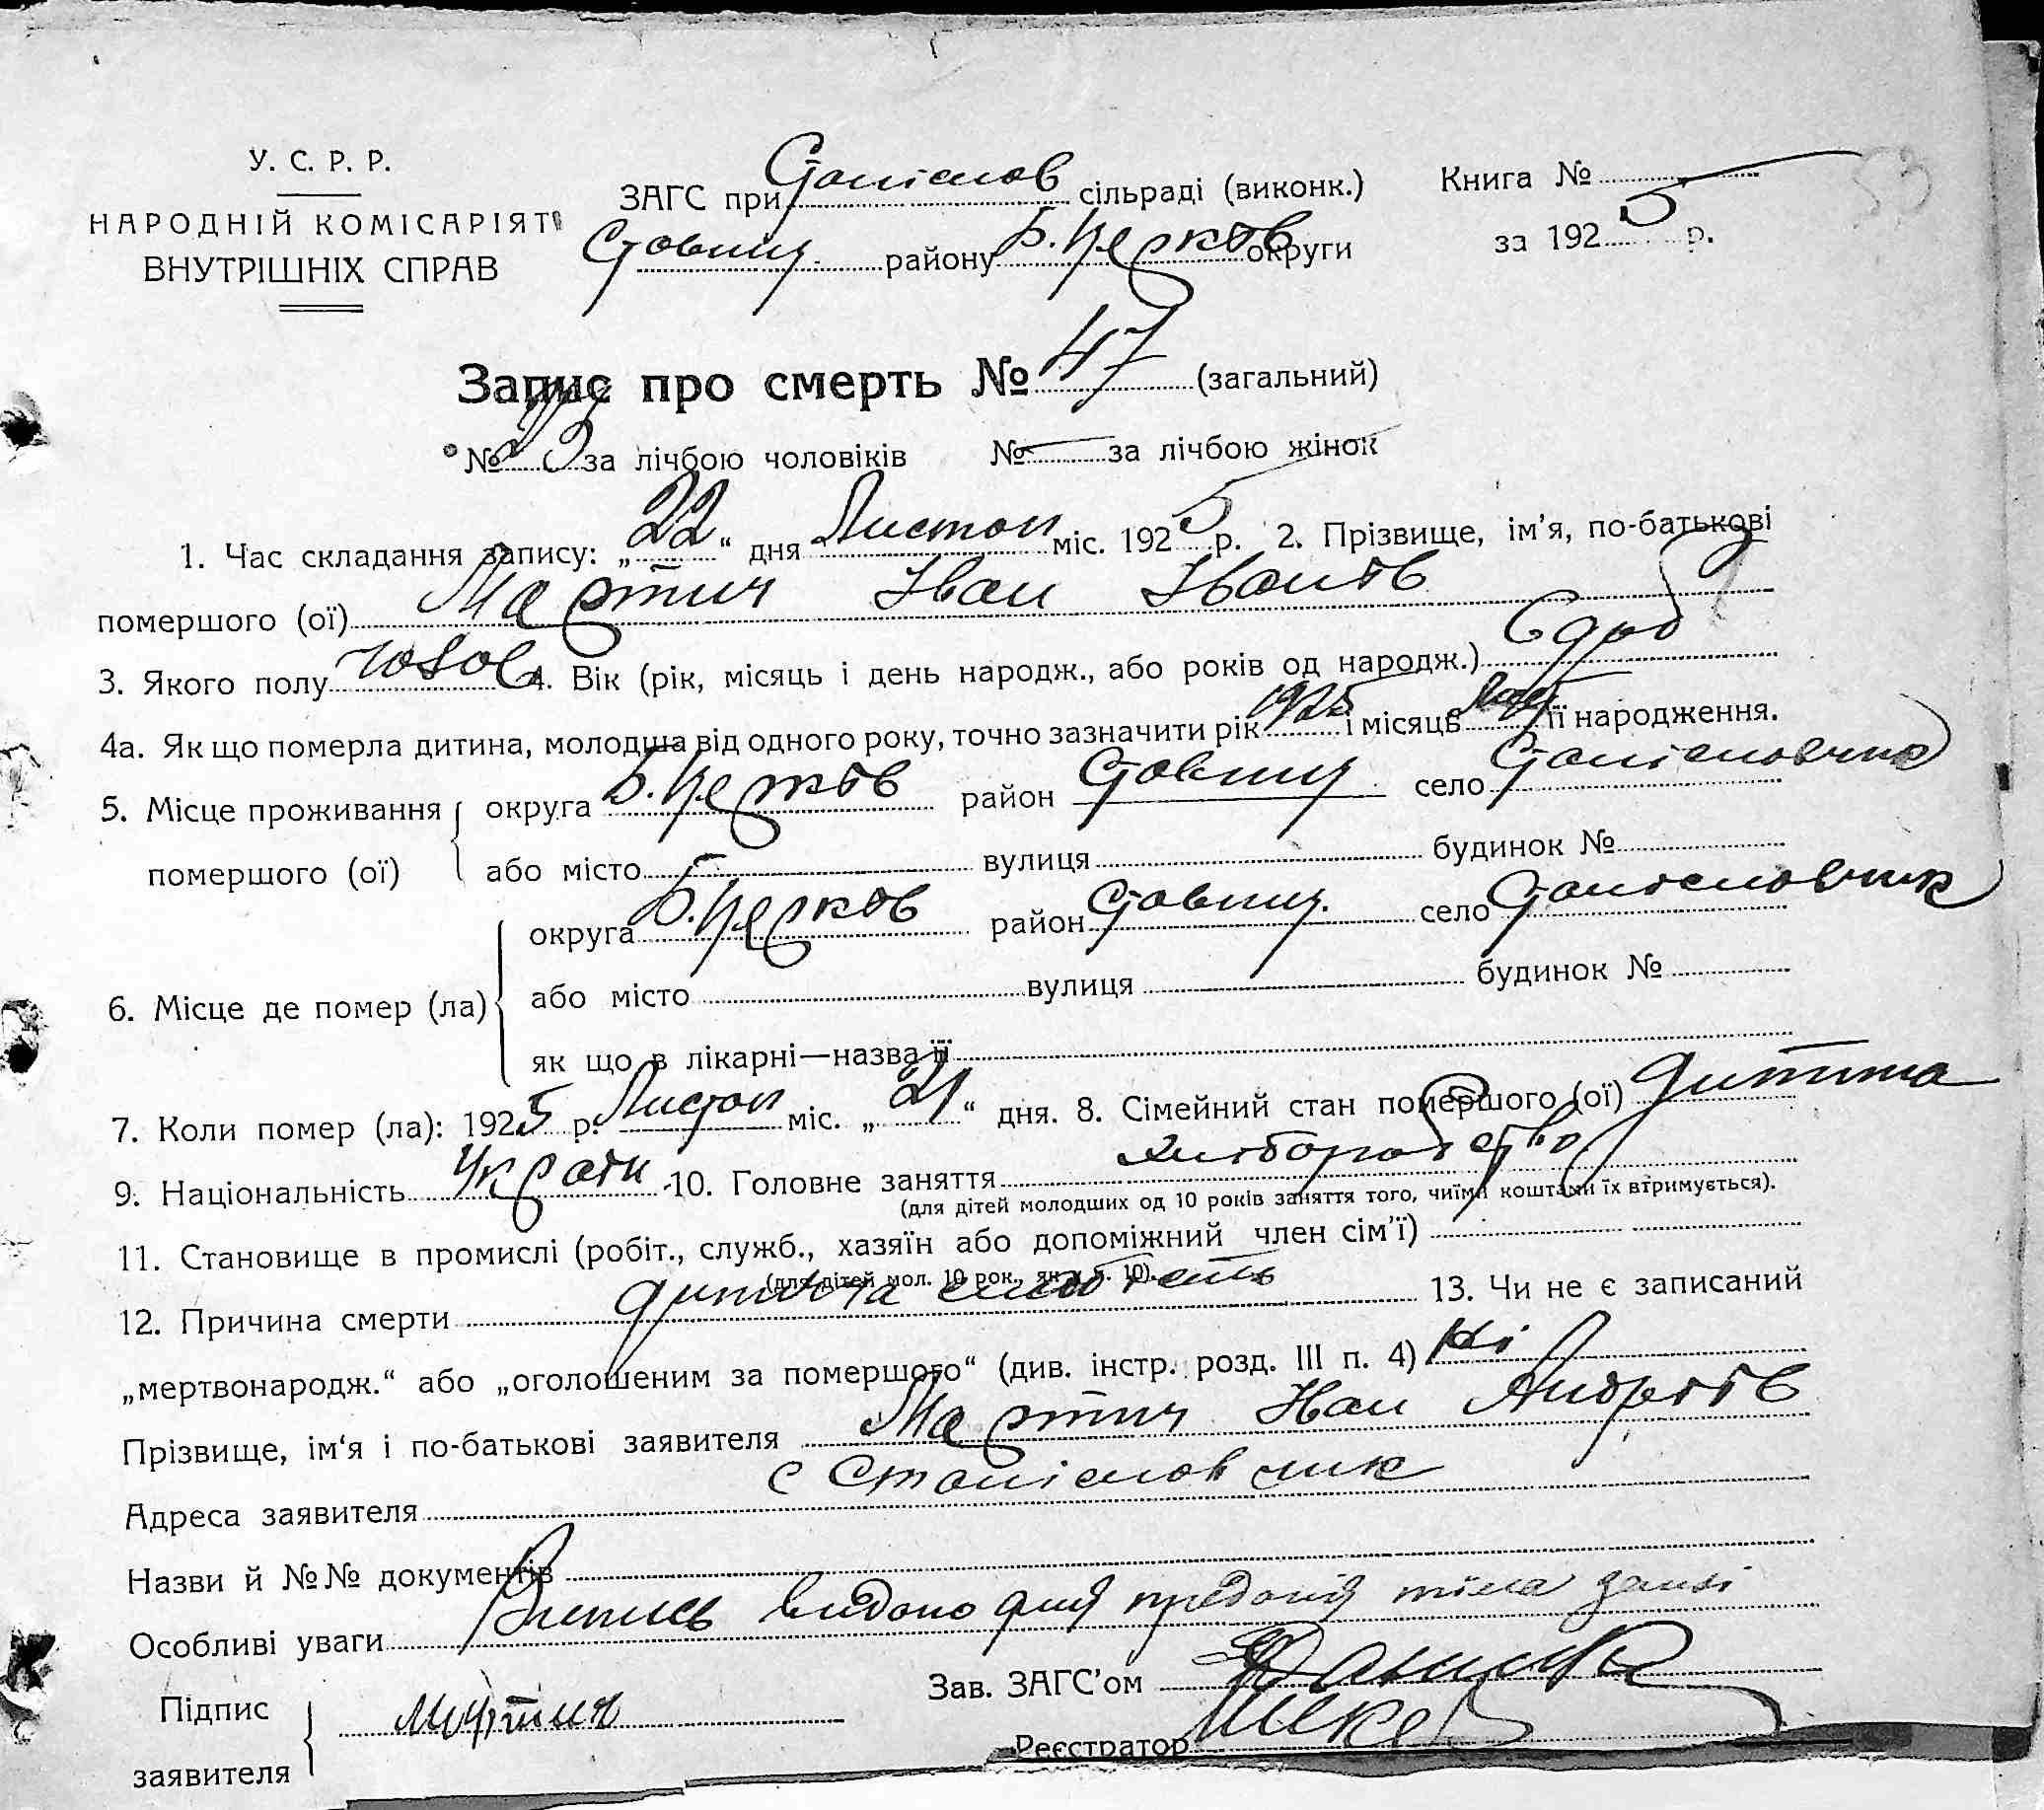 У. С. Р. Р.
НАРОДНІЙ КОМІСАРІЯТ
ВНУТРІШНІХ СПРАВ
ЗАГС при Станіслов сільраді (виконк.)
Ставищ. району Б. Церків округи
Книга №
за 1925 р.
53
Запис про смерть № 47 (загальний)
№ за лічбою чоловіків № — за лічбою жінок
1. Час складання запису: „22“ дня Листоп міс. 1925 р. 2. Прізвище, ім'я, по-батькові
помершого (ої) Мартич Иван Иванів
3. Якого полу чолов 4. Вік (рік, місяць і день народж., або років од народж.)
4а. Як що померла дитина, молодша від одного року, точно зазначити рік 1925 і місяць її народження.
5. Місце проживання помершого (ої) округа Б. Церків район Ставищ. село Станіслович
або місто вулиця будинок №
6. Місце де помер (ла) округа Б. Церков район Ставищ. село Станіславчик
або місто вулиця будинок №
як що в лікарні—назва її
7. Коли помер (ла): 1925 р. Листоп міс. „21“ дня. 8. Сімейний стан помершого (ої) дитина
9. Національність Україн 10. Головне заняття хлиборобство
(для дітей молодших од 10 років заняття того, чиїми коштами їх втримується).
11. Становище в промислі (робіт., служб., хазяїн або допоміжний член сім'ї)
(для дітей мол. 10 рок., як у п. 10).
12. Причина смерти дитяча слабість 13. Чи не є записаний
„мертвонародж.“ або „оголошеним за помершого“ (див. інстр. розд. III п. 4) Ні
Прізвище, ім'я і по-батькові заявителя Мартич Иван Андріїв
Адреса заявителя с Станіславчик
Назви й №№ документів
Особливі уваги Випись видано для предания тіла землі
Підпис заявителя Мартич
Зав. ЗАГС'ом
Реєстратор